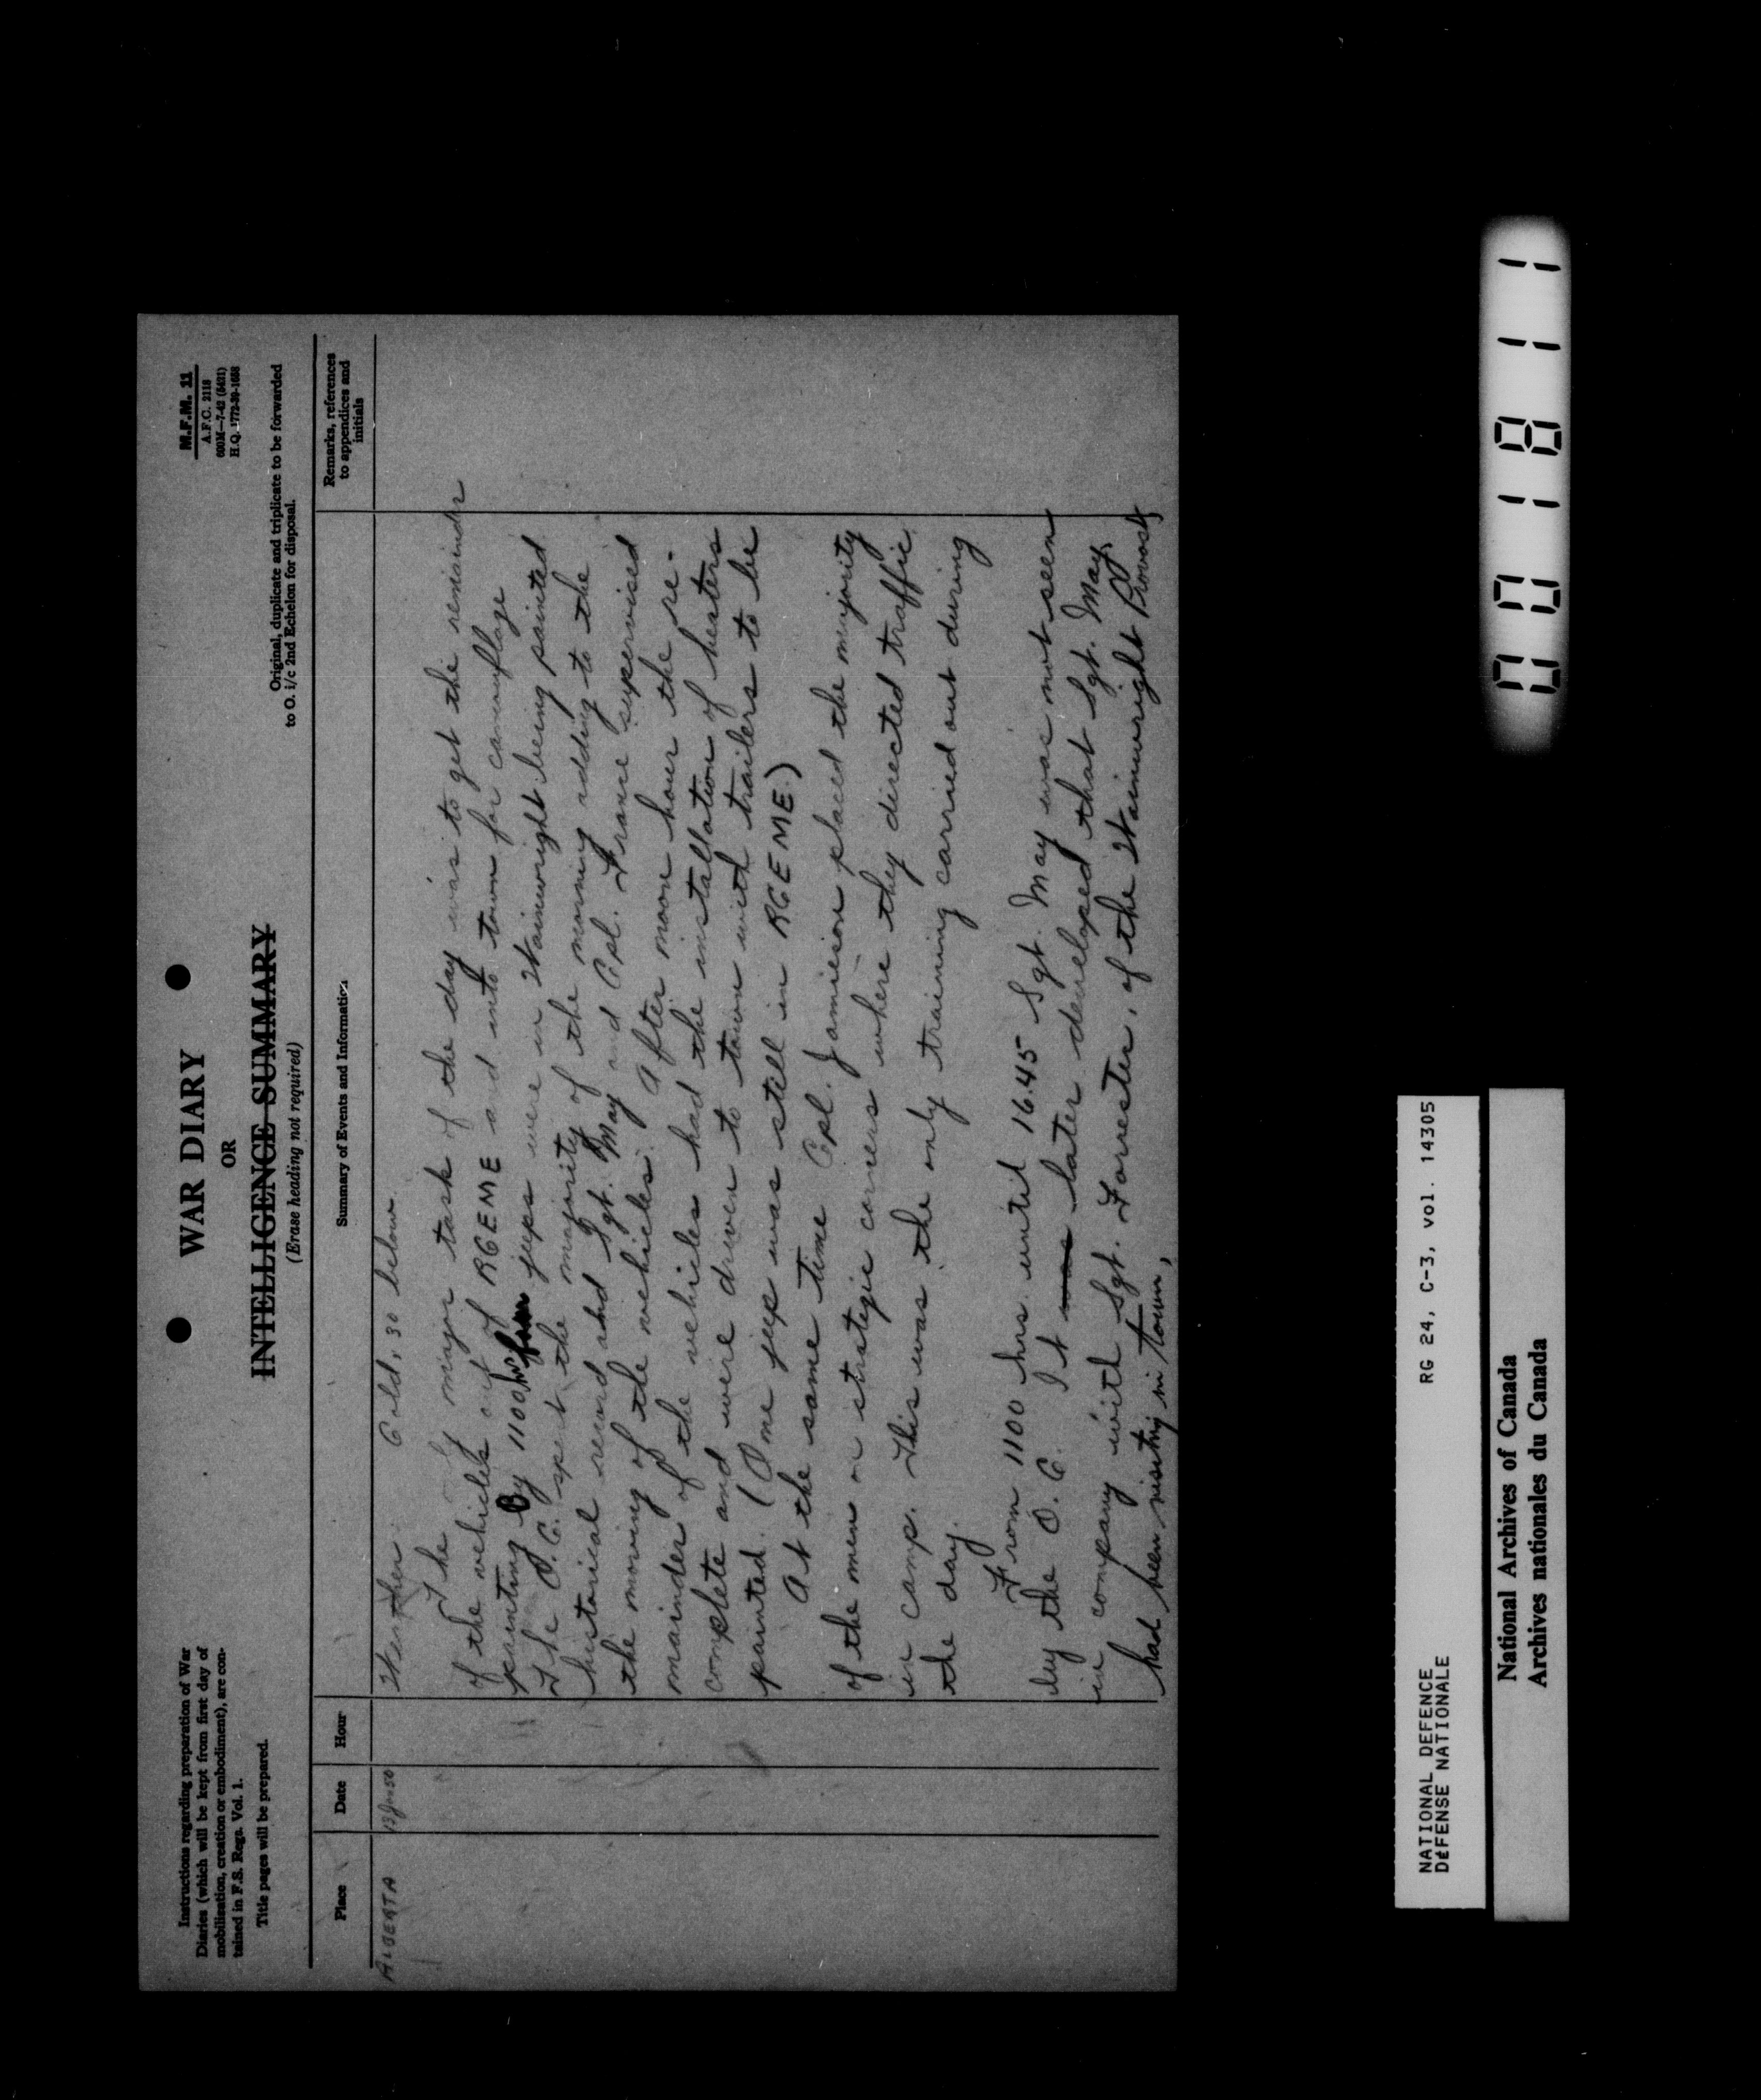 Instructions regarding preparation of War
Diaries (which will be kept from first day of
mobilisation, creation or embodiment), are con-
tained in F.S. Regs. Vol. 1.
Title pages will be prepared.
WAR DIARY
OR
INTELLIGENCE SUMMARY
(Erase heading not required)
M.F.M. 11
A.F.C. 2118
600M—7-42 (5421)
H.Q. 1772-39-1658
Original, duplicate and triplicate to be forwarded
to O. i/c 2nd Echelon for disposal.
Place Date Hour Summary of Events and Information Remarks, references
to appendices and
initials
ALBERTA 13 Jan 50 Weather. Cold, 30 below.
The only major task of the day was to get the remainder
of the vehicles out of RCEME and into town for camouflage
painting By 1100 hrs jeeps were in Wainwright being painted
The O.C. spent the majority of the morning adding to the
historical record and Sgt. May and Cpl. France supervised
the moving of the vehicles. After noon hour the re-
mainder of the vehicles had the installation of heaters
complete and were driven to town with trailers to be
painted. (One jeep was still in RCEME.)
At the same time Cpl. Jamieson placed the majority
of the men on strategic corners where they directed traffic
in camp. This was the only training carried out during
the day.
From 1100 hrs. until 16.45 Sgt. May was not seen
by the O.C. It was later developed that Sgt. May,
in company with Sgt. Forrester, of the Wainwright Provost,
had been visiting in town,
NATIONAL DEFENCE RG 24, C-3, vol. 14305
DÉFENSE NATIONALE
National Archives of Canada
Archives nationales du Canada
001811